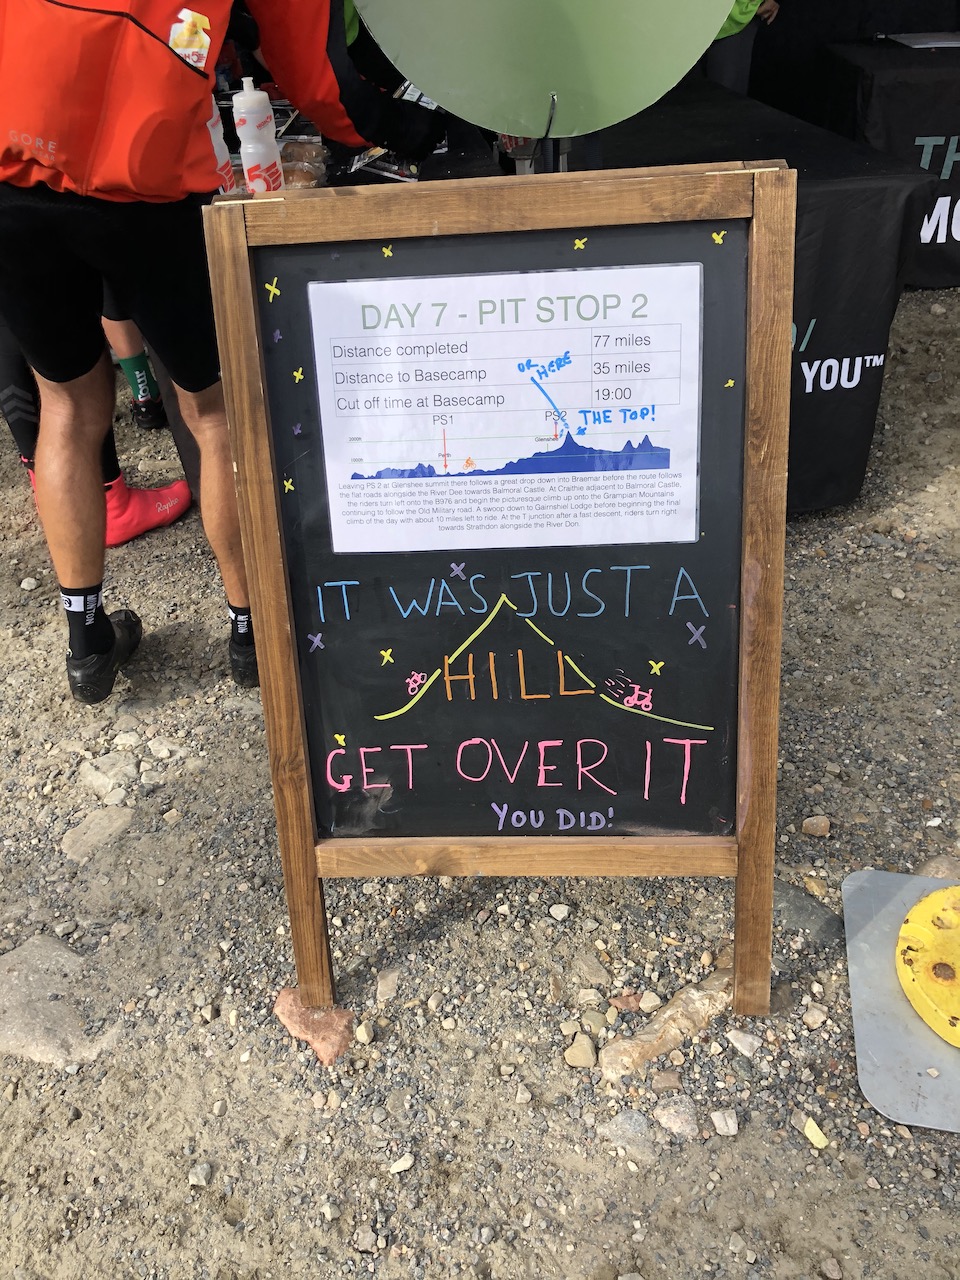 GORE
H5
5
TH
MO
/
YOU™
Rapha
MONTON
DAY 7 - PIT STOP 2
Distance completed 77 miles
Distance to Basecamp 35 miles
Cut off time at Basecamp 19:00
OR HERE
PS1 PS2 THE TOP!
2000ft Glenshee
1000ft Perth
Leaving PS 2 at Glenshee summit there follows a great drop down into Braemar before the route follows
the flat roads alongside the River Dee towards Balmoral Castle. At Craithie adjacent to Balmoral Castle,
the riders turn left onto the B976 and begin the picturesque climb up onto the Grampian Mountains
continuing to follow the Old Military road. A swoop down to Gairnshiel Lodge before beginning the final
climb of the day with about 10 miles left to ride. At the T junction after a fast descent, riders turn right
towards Strathdon alongside the River Don.
IT WAS JUST A
HILL
GET OVER IT
YOU DID!